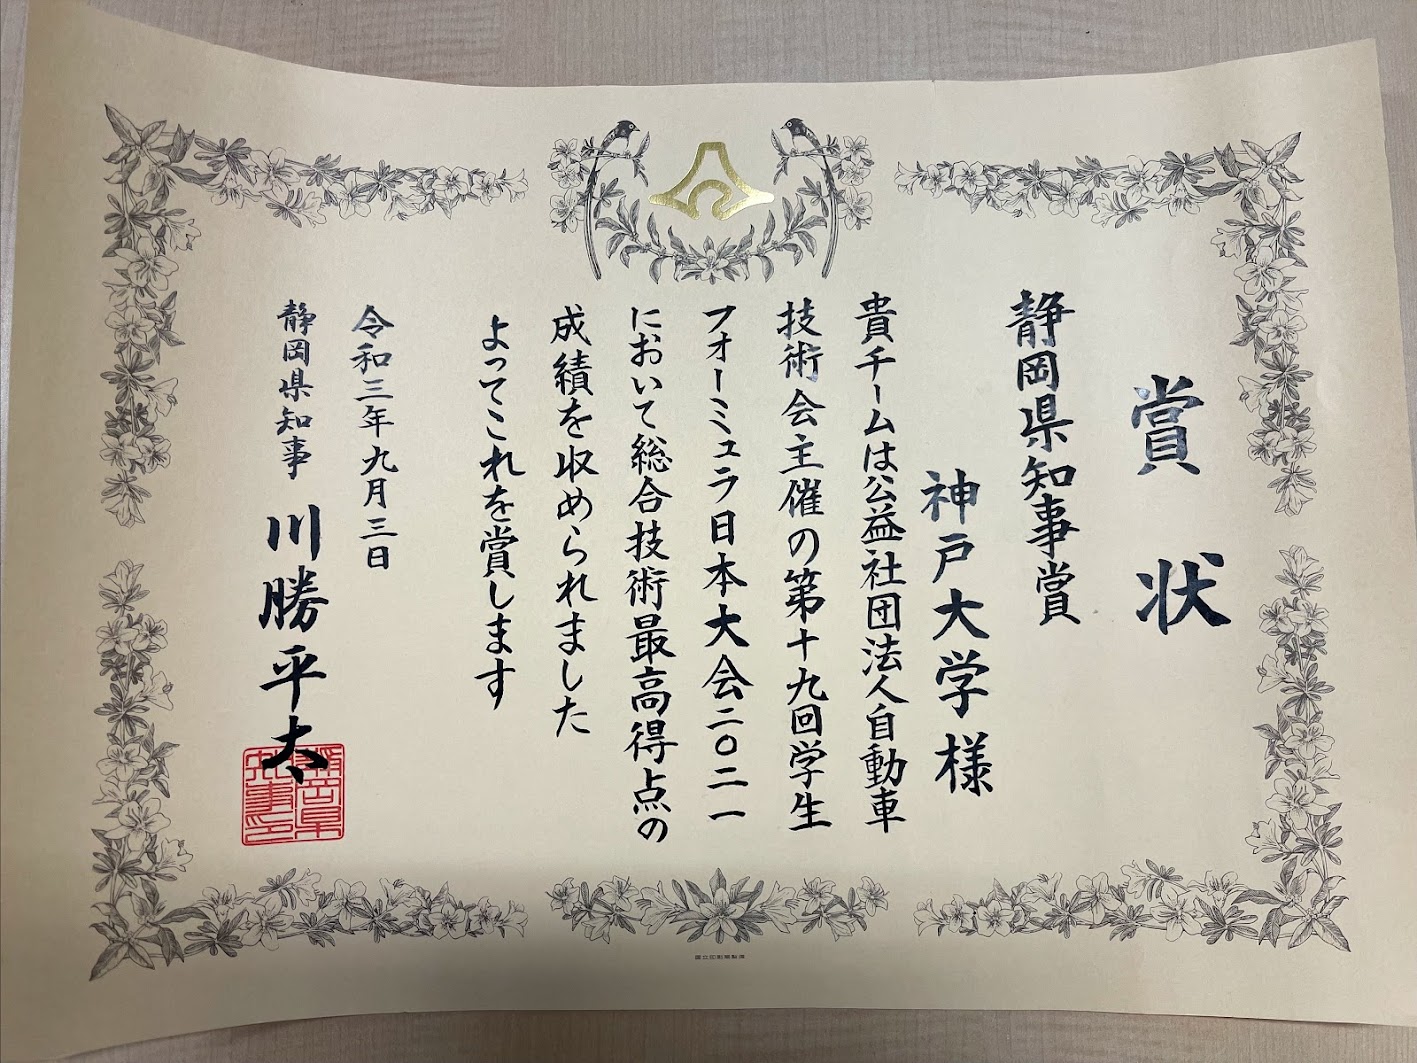 賞状
静岡県知事賞
神戸大学様
貴チームは公益社団法人自動車
技術会主催の第十九回学生
フォーミュラ日本大会二〇二一
において総合技術最高得点の
成績を収められました
よってこれを賞します
令和三年九月三日
静岡県知事 川勝平太
静岡県知事之印
国立印刷局製造